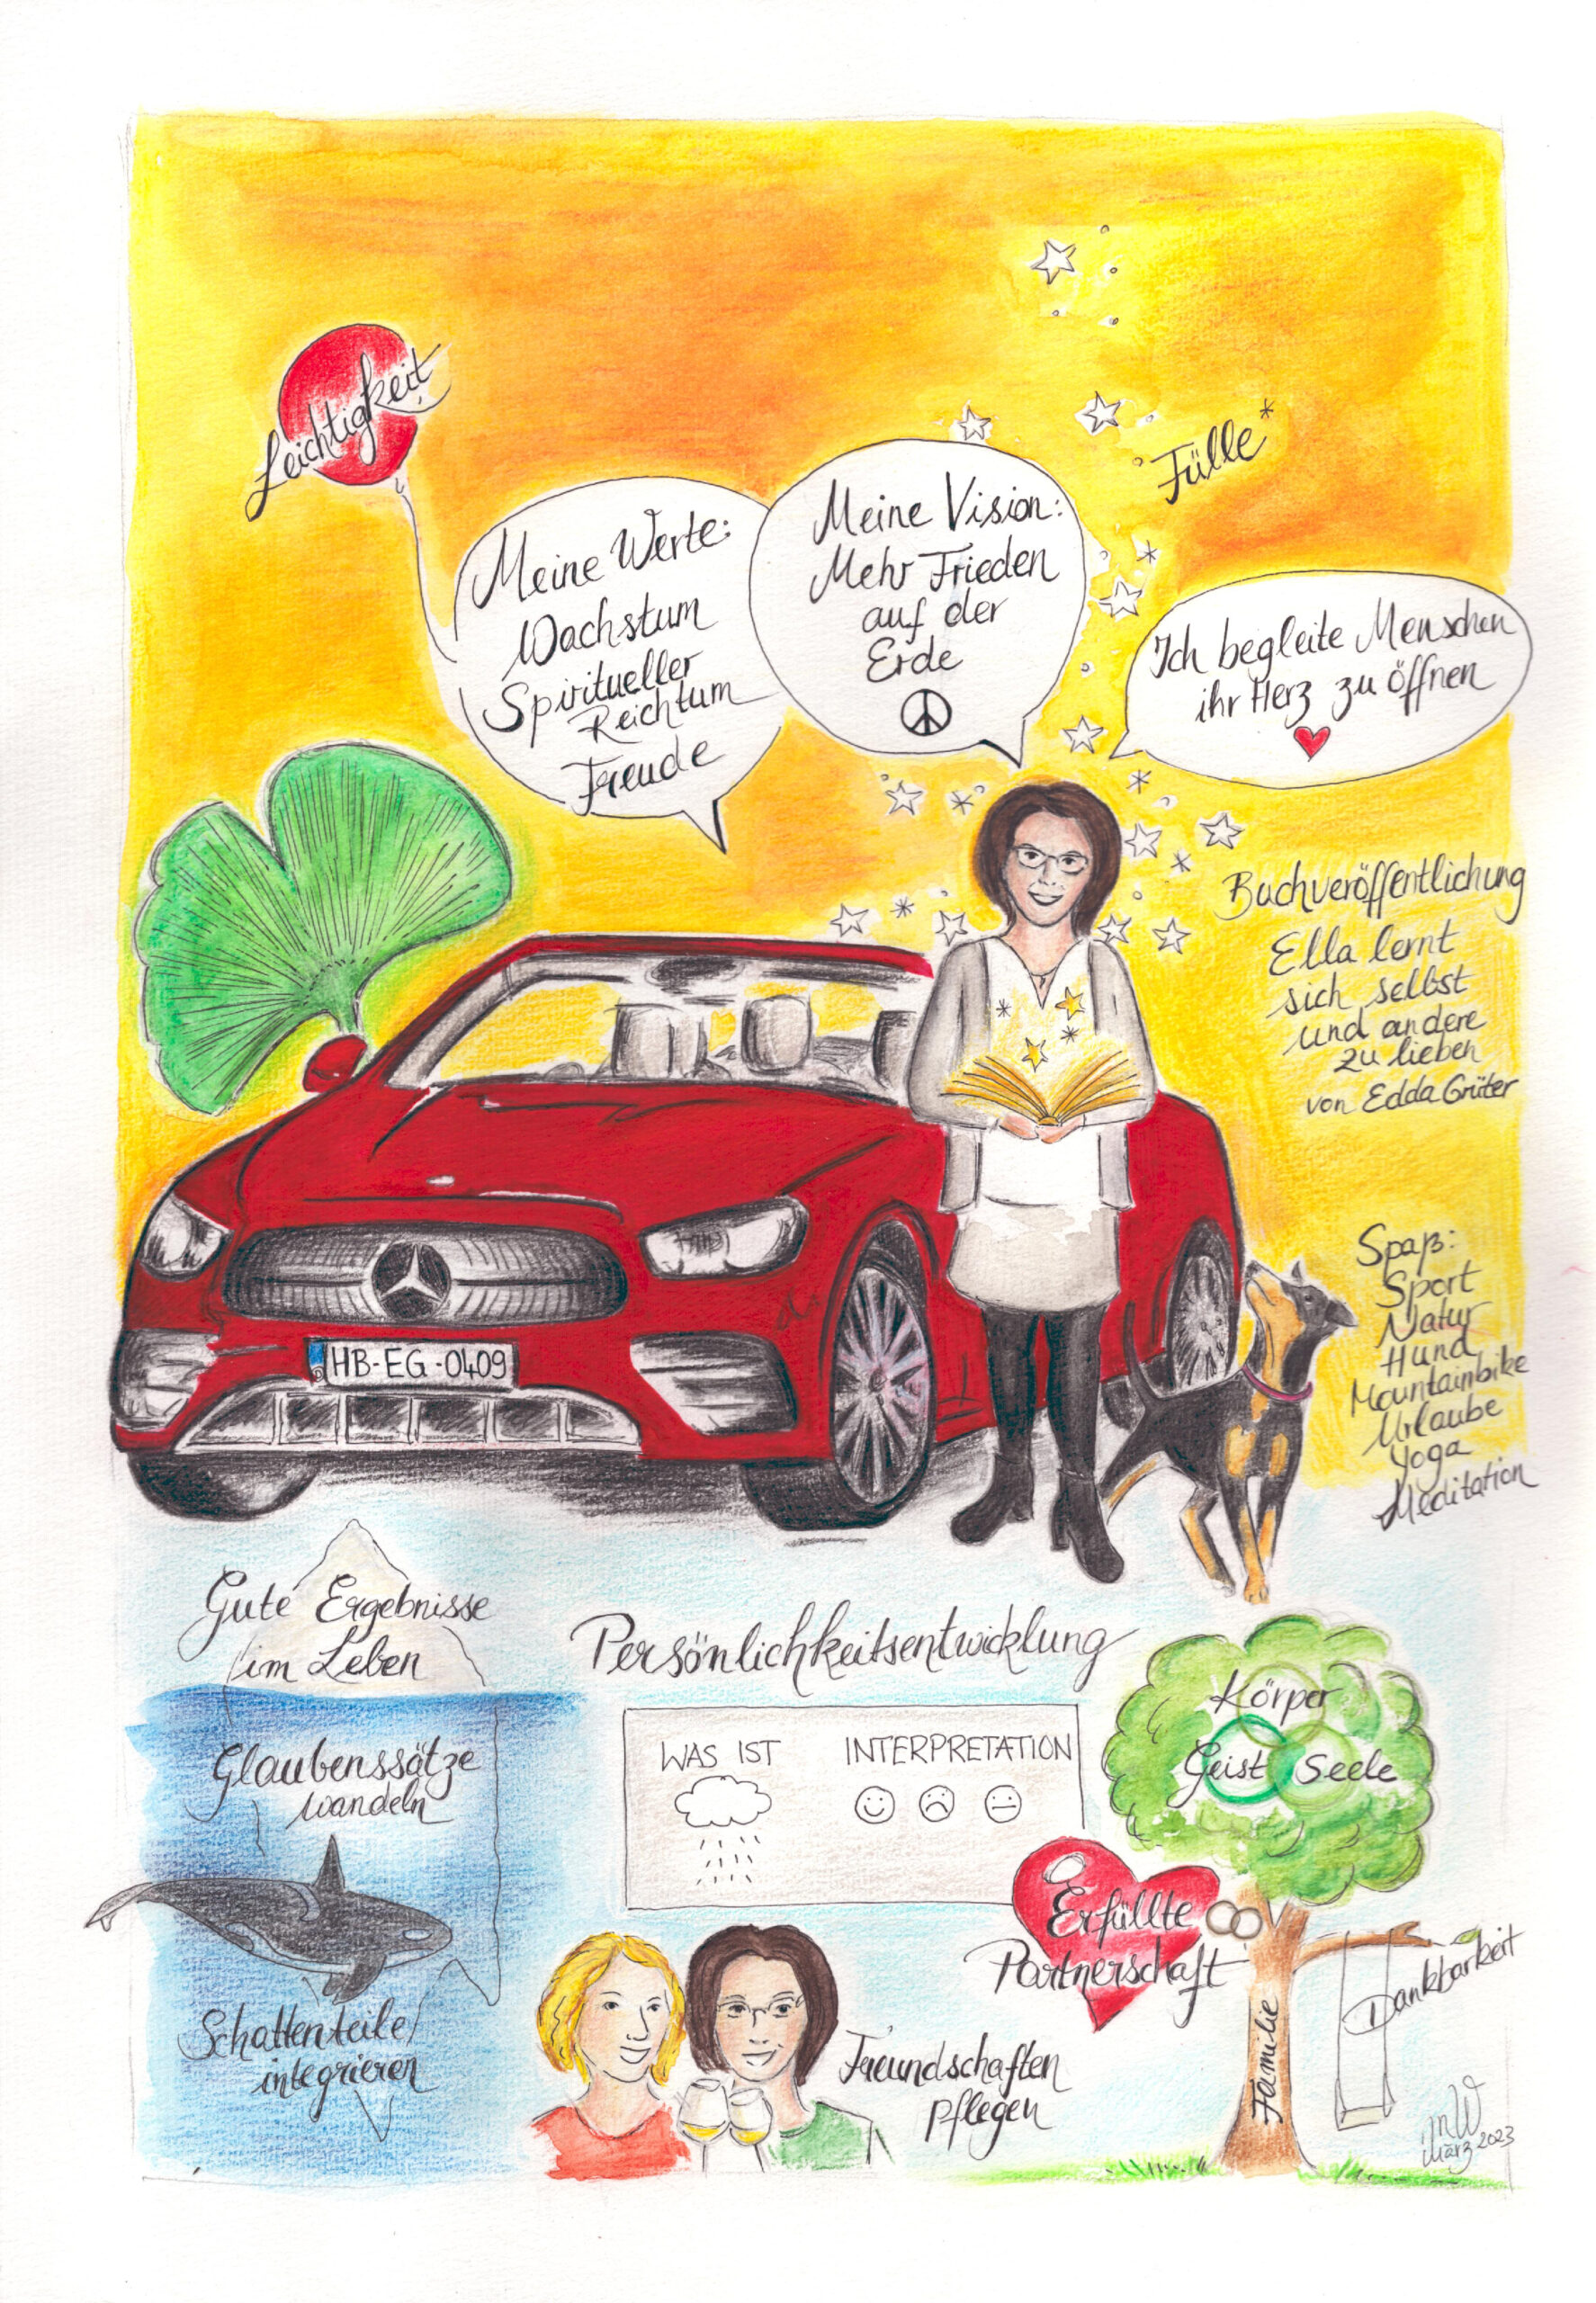 Leichtigkeit
Fülle*
Meine Werte:
Wachstum
Spiritueller
Reichtum
Freude
Meine Vision:
Mehr Frieden
auf der
Erde
Ich begleite Menschen
ihr Herz zu öffnen
Buchveröffentlichung
Ella lernt
sich selbst
und andere
zu lieben
von Edda Grüter
HB-EG-0409
Spaß:
Sport
Natur
Hund
Mountainbike
Urlaube
Yoga
Meditation
Gute Ergebnisse
im Leben
Glaubenssätze
wandeln
Schattenteile
integrieren
Persönlichkeitsentwicklung
WAS IST
INTERPRETATION
Freundschaften
pflegen
Körper
Geist
Seele
Erfüllte
Partnerschaft
Familie
Dankbarkeit
März 2023